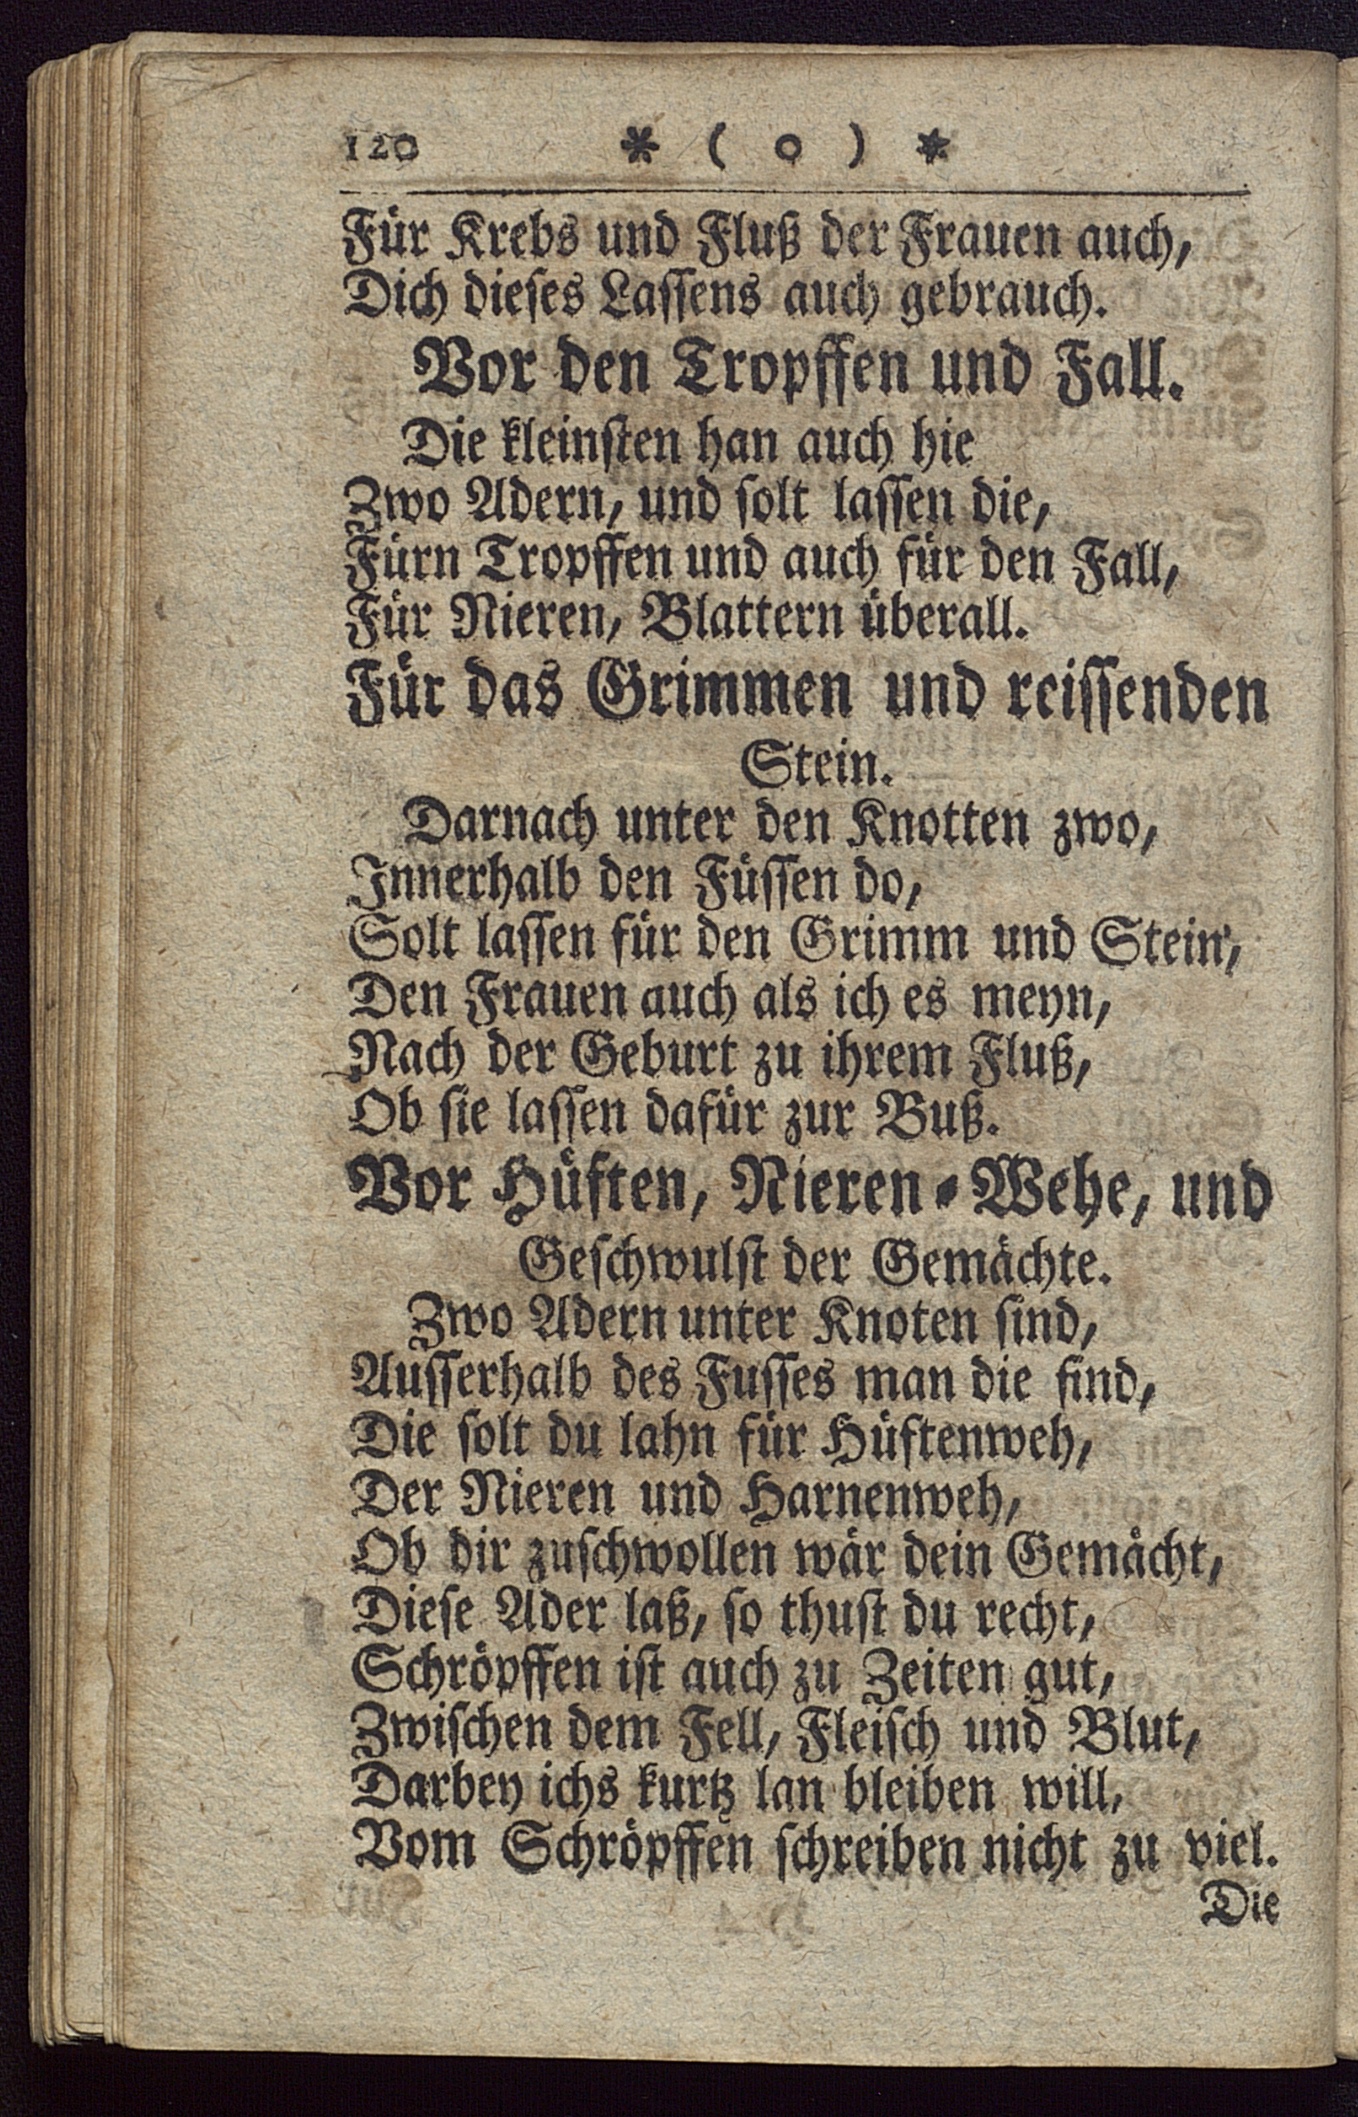 120 * ( o ) *
Für Krebs und Fluß der Frauen auch,
Dich dieses Lassens auch gebrauch.
Vor den Tropffen und Fall.
Die kleinsten han auch hie
Zwo Adern, und solt lassen die,
Fürn Tropffen und auch für den Fall,
Für Nieren, Blattern überall.
Für das Grimmen und reissenden
Stein.
Darnach unter den Knotten zwo,
Innerhalb den Füssen do,
Solt lassen für den Grimm und Stein,
Den Frauen auch als ich es meyn,
Nach der Geburt zu ihrem Fluß,
Ob sie lassen dafür zur Buß.
Vor Hüften, Nieren-Wehe, und
Geschwulst der Gemächte.
Zwo Adern unter Knoten sind,
Ausserhalb des Fusses man die find,
Die solt du lahn für Hüftenweh,
Der Nieren und Harnenweh,
Ob dir zuschwollen wär dein Gemächt,
Diese Ader laß, so thust du recht,
Schröpffen ist auch zu Zeiten gut,
Zwischen dem Fell, Fleisch und Blut,
Darbey ichs kurtz lan bleiben will,
Vom Schröpffen schreiben nicht zu viel.
Die